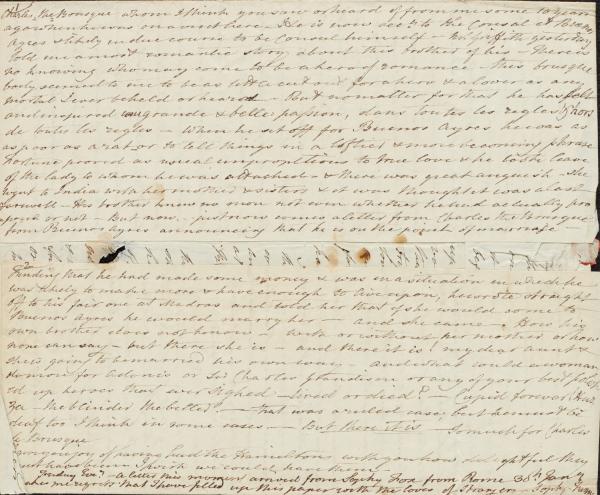 Charles, the Brusque whom I think you saw or heard of from me some 10 years
ago when he was on a visit here. He is now sec. to the Consul at Buenos
Ayres & likely in due course to be Consul himself – Mr Griffith yesterday
told me a most romantic story about this brother of his – There is
no knowing who may come to be a hero of romance – this brusque
body seemed to me to be as little cut out for a hero & a lover as any
mortal I ever beheld or heard – But no matter for that he has felt
and inspired une grande & belle passion, dans toutes les regles & hors
de toutes les regles – When he set off for Buenos Ayres he was as
as poor as a rat, or to tell things in a loftier & more becoming phrase
Fortune proved as usual unpropitious to true love & he took leave
of the lady to whom he was attached – & there was great anguish – She
went to India with her mother & sisters & it was thought it was a last
farewell – His brother knew no more not even whether he had actually pro
posed or not – But now.. just now comes a letter from Charles the Brusque
from Buenos Ayres announcing that he is on the point of marriage –
Finding that he had made some money & was in a situation in which he
was likely to make more & have enough to live upon, he wrote straight
off to his fair one at Madras and told her that if she would come to
Buenos Ayres he would marry her – and she came – How his
own brother does not know – with or without her mother or how
none can say – but there she is – and there it is! my dear aunt &
she is going to be married his own way – and what could a woman
do more for Adonis or Sir Charles Grandison or any of your best
ed up heroes that ever sighed – lived or died? – Cupid forever, Huz
za – the blinder the better – that was a ruled case; but he must be
deaf too I think in some cases – But there it is – So much for Charles
le Brusque
you joy of having had the Hamiltons with you how delightful they
must have been I wish we could have them!
Friday Evg a letter this moment arrived from Sophy Fox from Rome 30th Jany
makes me regret that I have filled up this paper with the loves of Strangers – Sophy